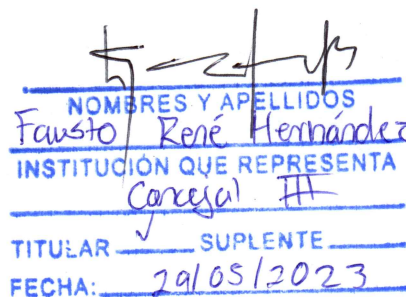 NOMBRES Y APELLIDOS
Fausto René Hernández
INSTITUCIÓN QUE REPRESENTA
Concejal III
TITULAR ✓ SUPLENTE
FECHA: 29/05/2023